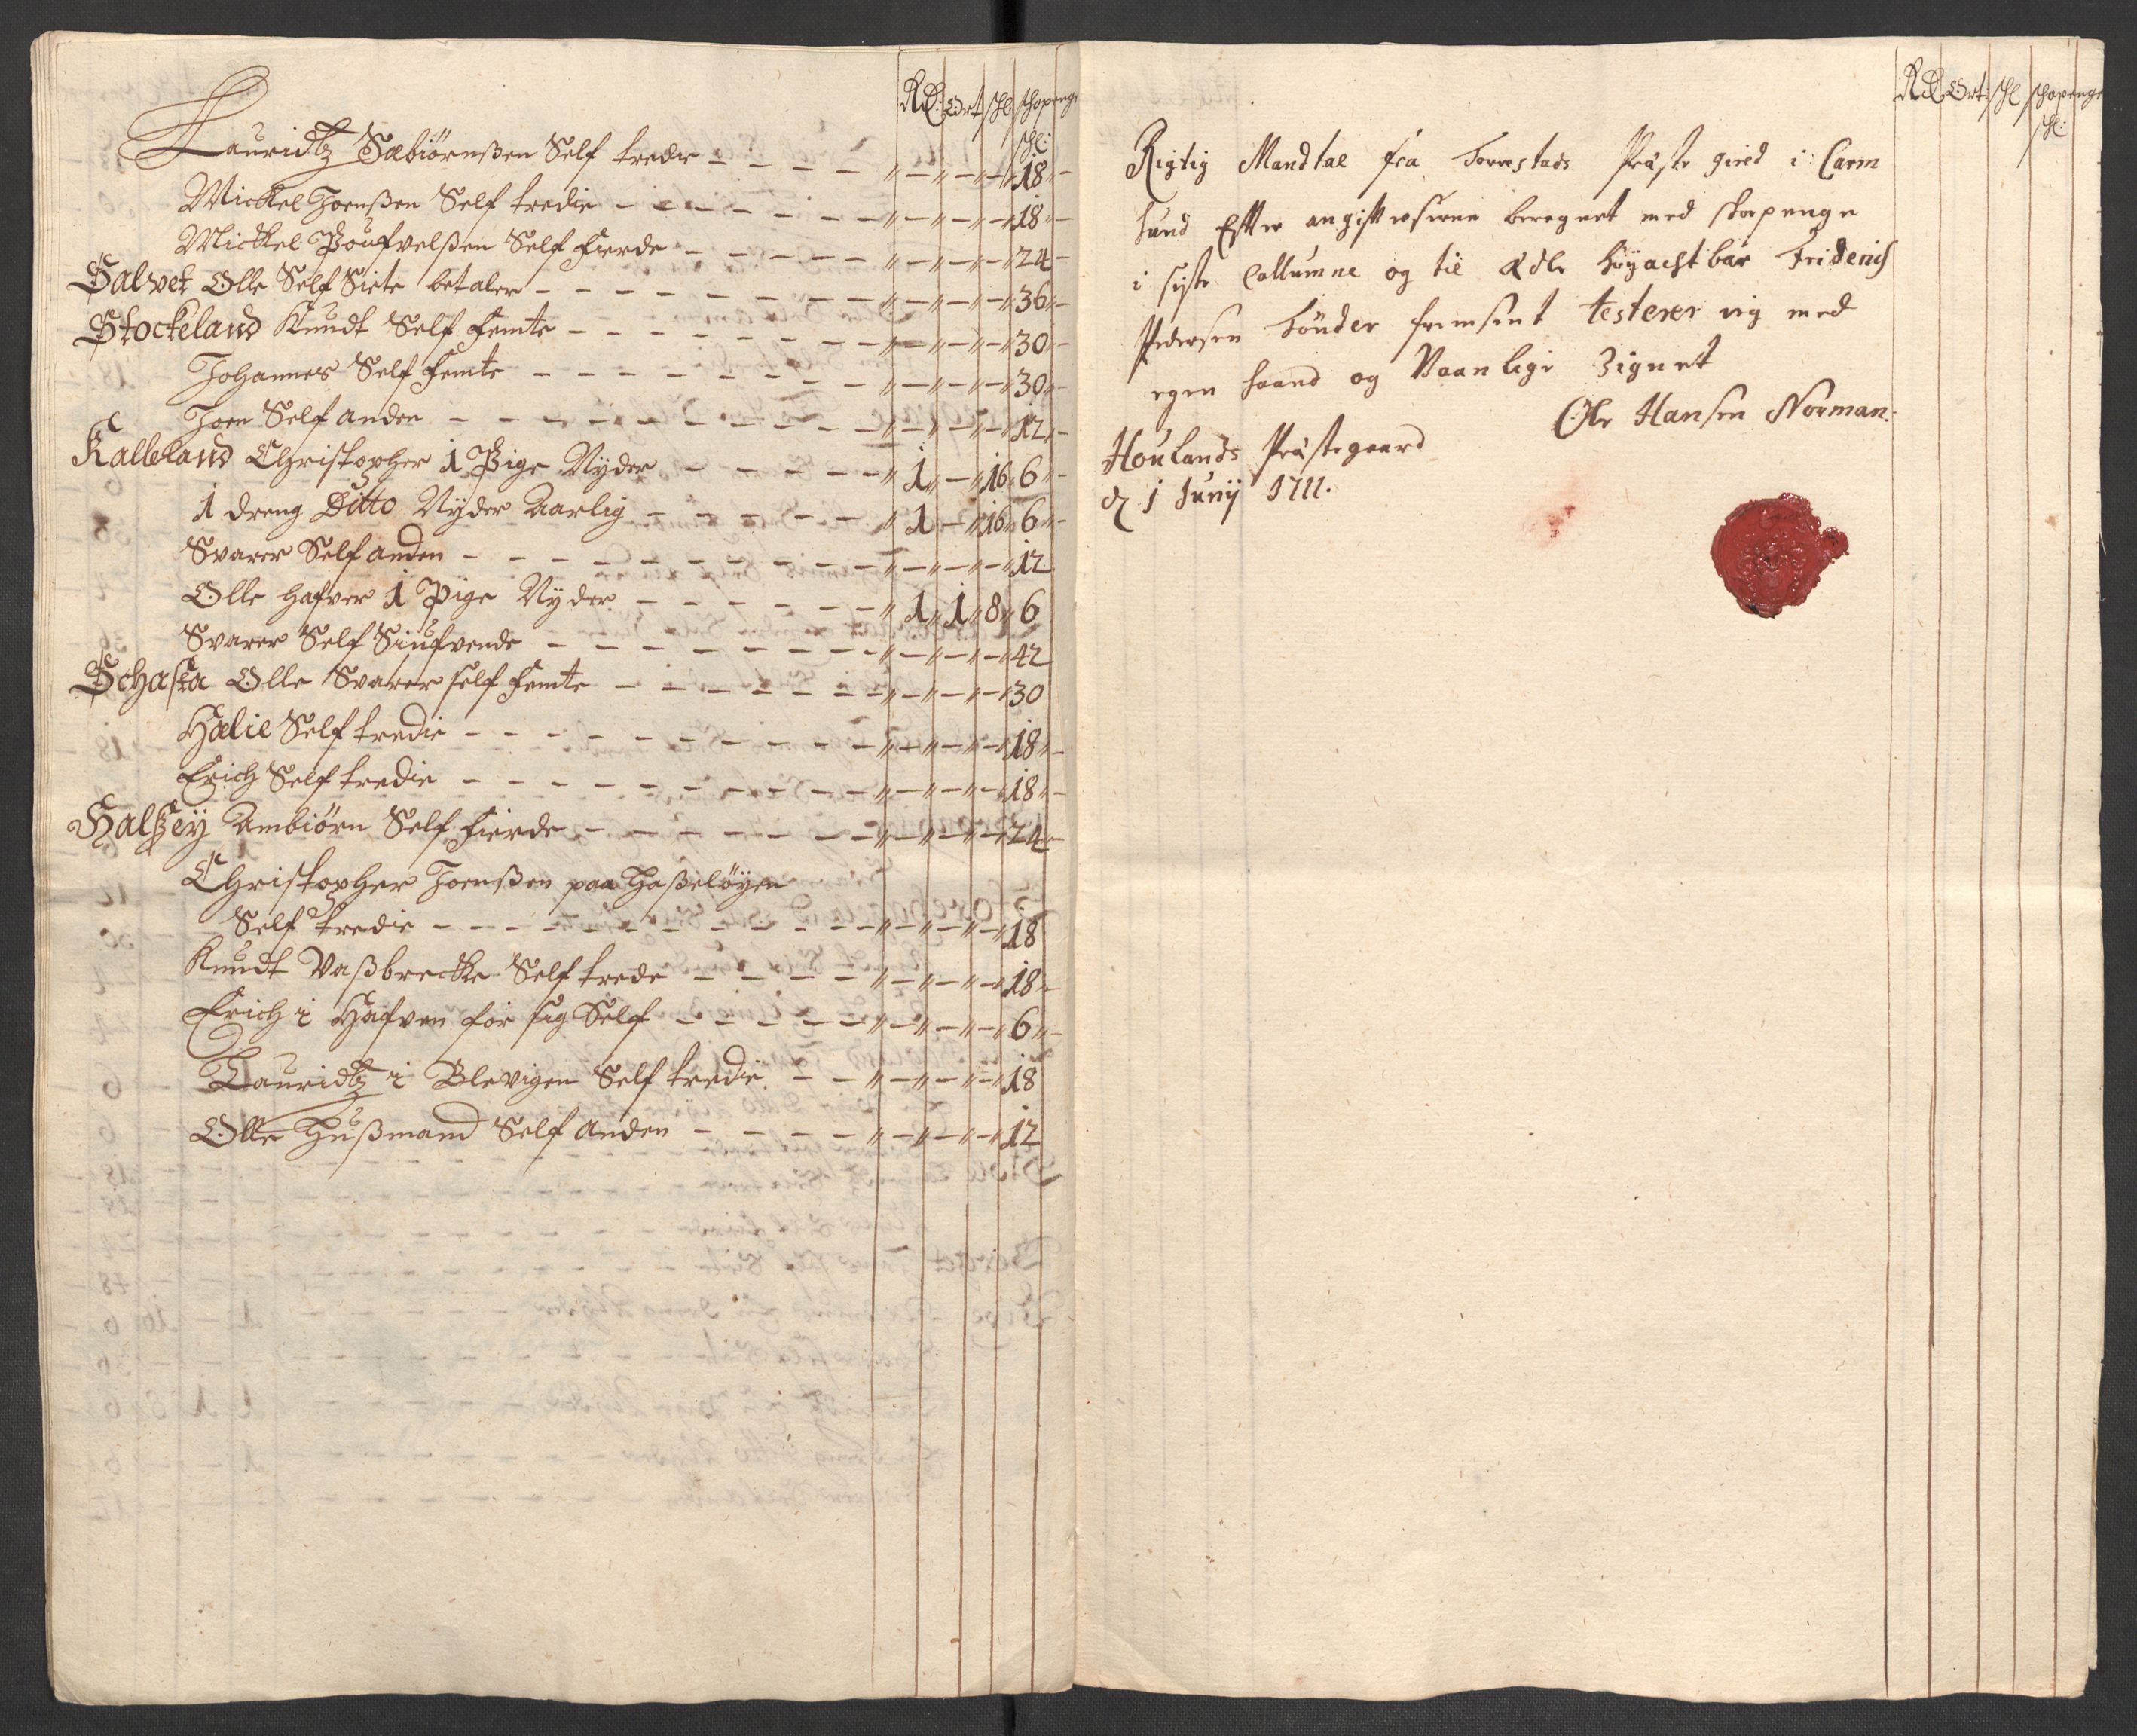 Rd: Ort shl shopenge
shl:
Lauridtz Sæbiørnßen Self tredie - - - - " - " - " - " 18 -
Mickel Joenßen Self tredie - - - - - - " - " - " - " 18 " -
Mickel Poufvelßen Self Fierde - - - - - " - " - " - " 24 -
Salvet Olle Self Siete betaler - - - - - - - - " - " - " - " 36 " -
Stockeland Knudt Self Femte - - - - - - - " - " - " - " 30 " -
Johannes Self Femte - - - - - - - - " - " - " - " 30 " -
Joen Self anden - - - - - - - - - " - " - " - " 12 " -
Kalleland Christopher 1 Pige Nyder - - - - - " 1 " - " 16 " 6 " -
1 dreng Ditto Nyder Aarlig - - - - - " 1 - " 16 " 6 " -
Svarer Self anden - - - - - - - - - " - " - " - " 12
Olle hafver 1 Pige Nyder - - - - - - " 1 " 1 " 8 " 6
Svarer Self Siufvende - - - - - - - - " - " - " - " 42
Schasta Olle Svarer self Femte - - - - - - " - " - " - " 30
Hælie Self tredie - - - - - - - - - " - " - " - " 18 " -
Erich Self tredie - - - - - - - - - " - " - " - " 18 " -
Halßeÿ Ambiørn Self Fierde - - - - - - - " - " - " - " 24 -
Christopher Joenßen paa Haßeløyen
Self tredie - - - - - - - - - - " - " - " - " 18
Knudt Vaßbrecke Self trede - - - - " - " - " - " 18 -
Erich i Hafven for sig Self - - - - - " - " - " - " 6 " -
Lauridtz i Blevigen Self tredie - - " - " - " - " 18
Olle Hußmand Self Anden - - - - " - " - " - " 12
Rd Ort: shl shopenge
shl:
Rigtig Mandtal fra Torrestads Præste gield i Carm
sund Efter angifvelserne beregnet med skopenge
i siste Collumne og til Ædle høyachtbar Friderich
Pedersen Tönder fremsent testerer ieg med
egen haand og Vaanlige Zignet
Ole Hansen Norman.
Houlands Præstegaard
d. 1 Junij 1711.